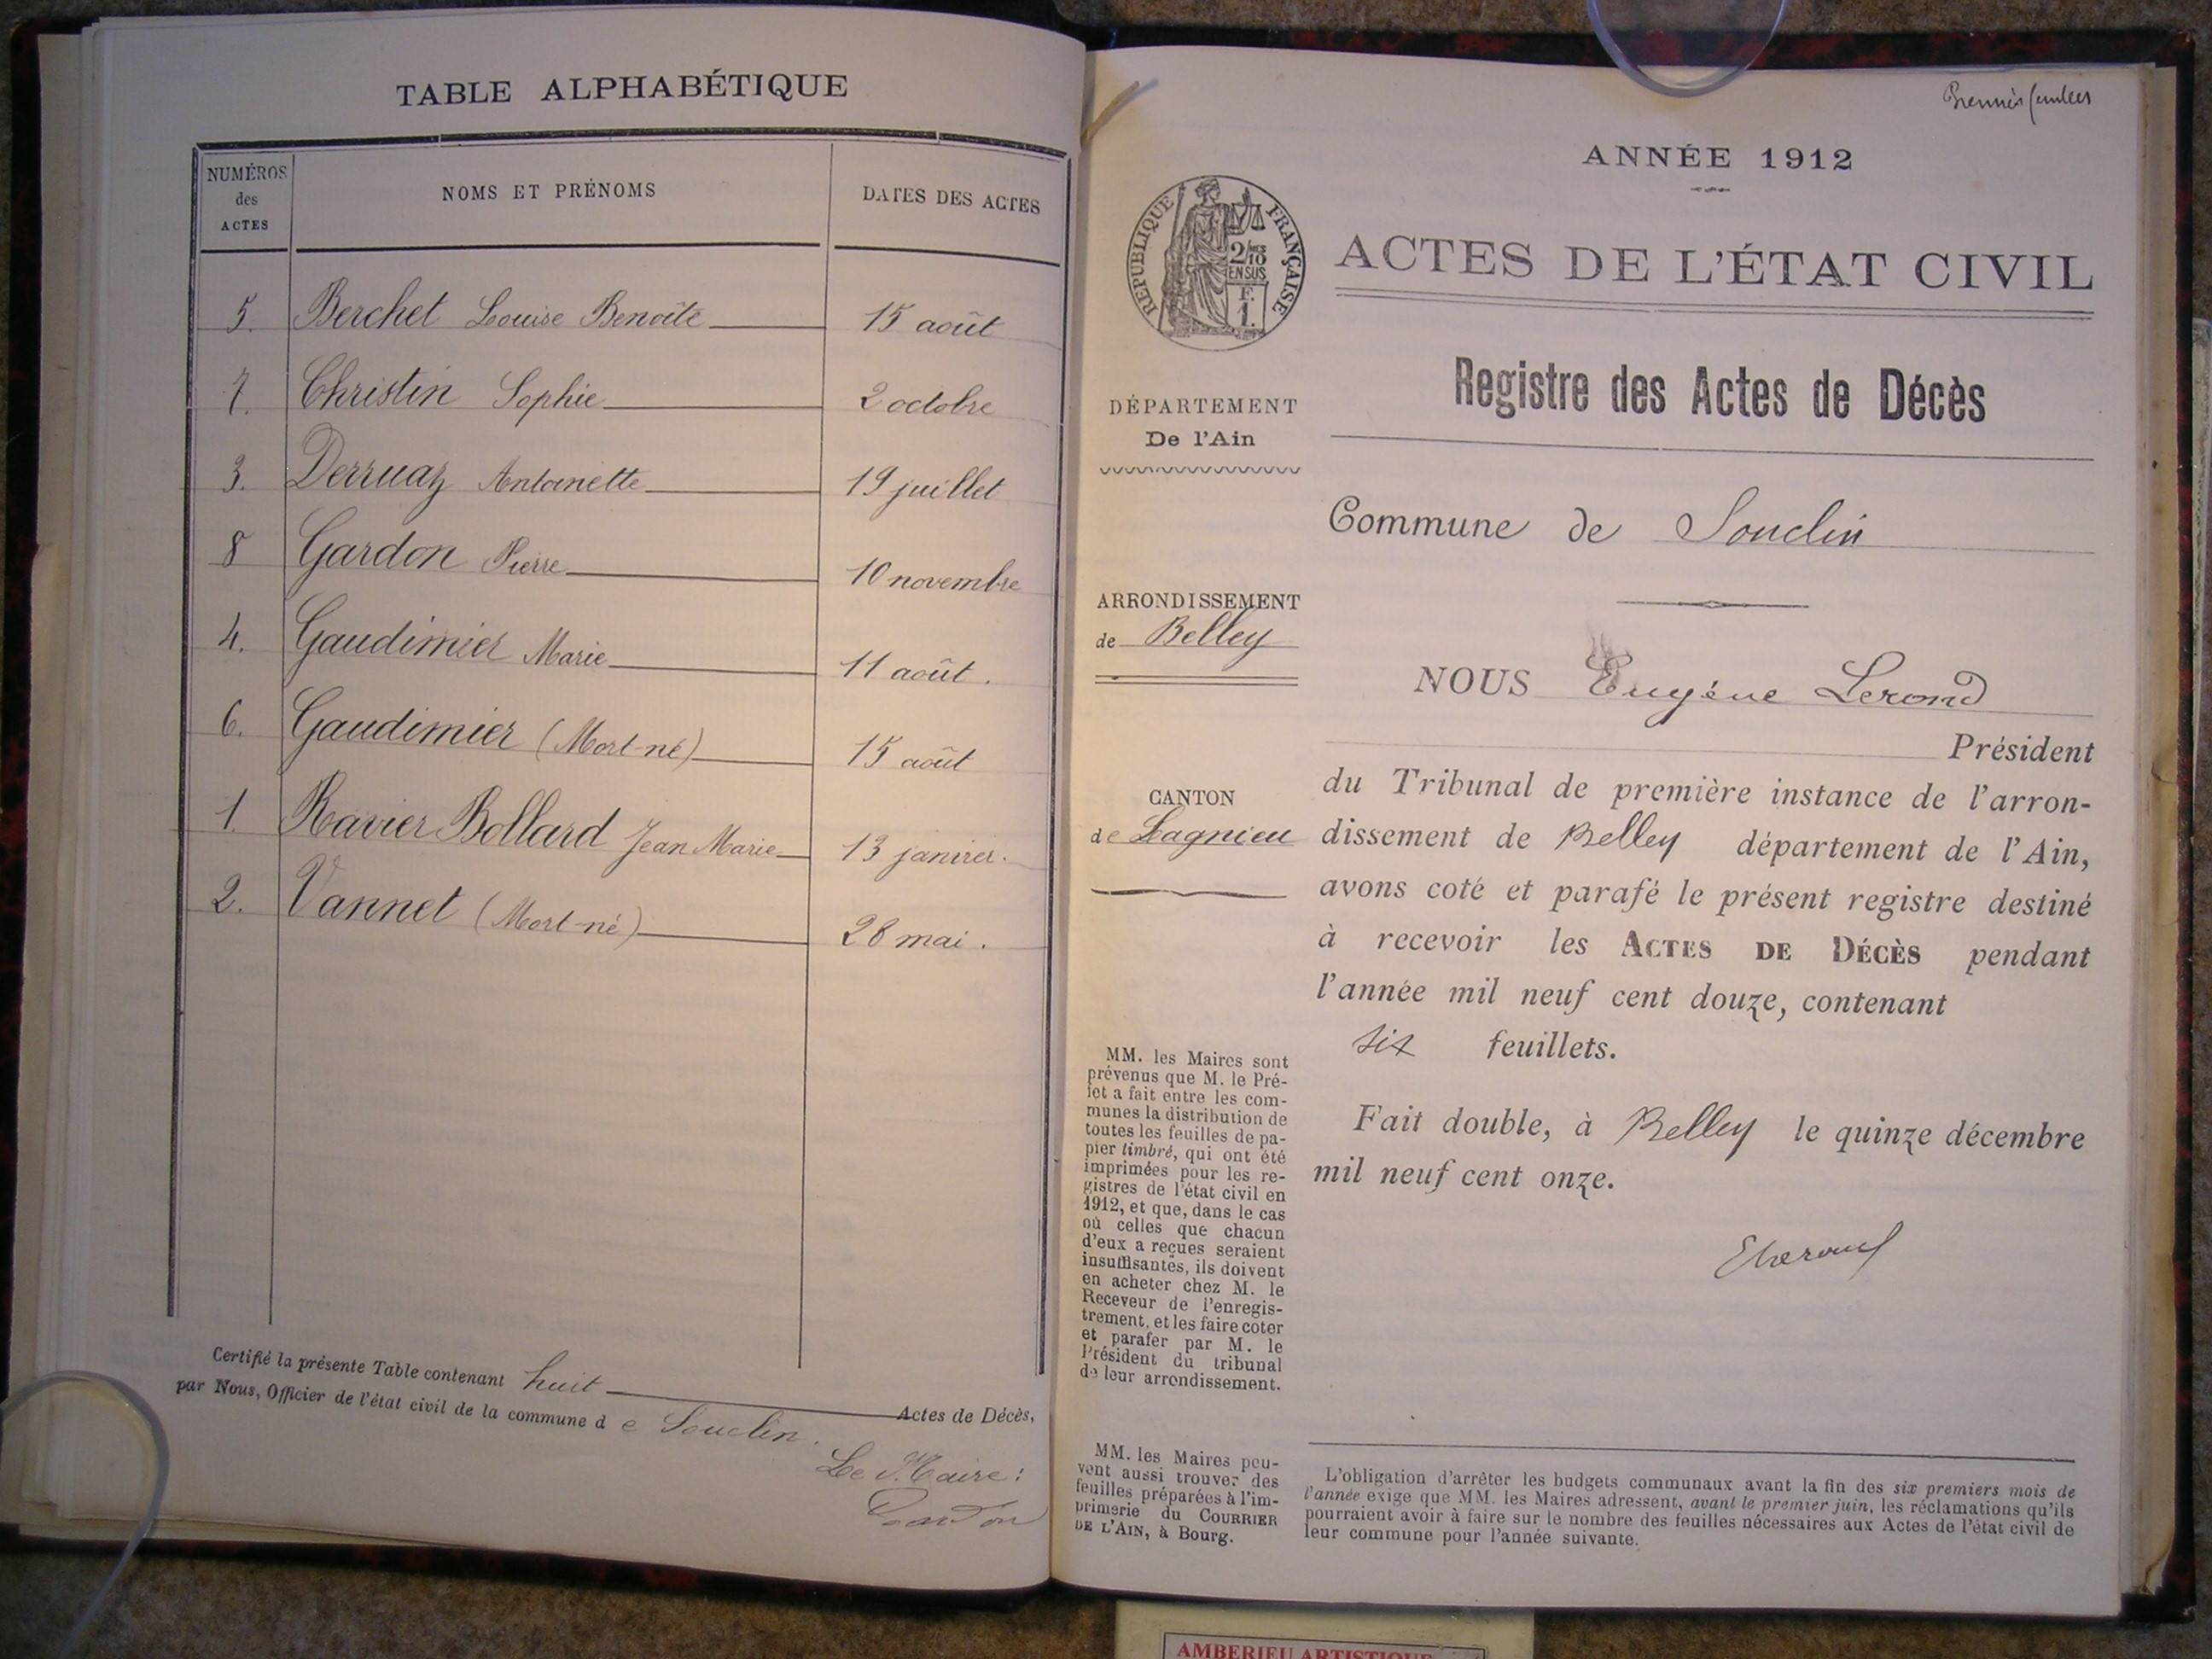 TABLE ALPHABÉTIQUE
NUMÉROS des ACTES
NOMS ET PRÉNOMS
DATES DES ACTES
5. Berchet Louise Benoite 15 août
7. Christin Sophie 2 octobre
3. Derruaz Antoinette 19 juillet
8 Gardon Pierre 10 novembre
4. Gaudimier Marie 11 août.
6. Gaudimier (Mort-né) 15 août
1. Ravier Bollard Jean Marie 13 janvier.
2. Vannet (Mort-né) 28 mai.
Certifié la présente Table contenant huit Actes de Décès,
par Nous, Officier de l'état civil de la commune de Souclin.
Le Maire:
Gardon
Premier
ANNÉE 1912
ACTES DE L'ÉTAT CIVIL
RÉPUBLIQUE FRANÇAISE
2/10 MES
EN SUS
F.
1.
Registre des Actes de Décès
DÉPARTEMENT
De l'Ain
Commune de Souclin
ARRONDISSEMENT
de Belley
NOUS Eugène Lerond
Président
CANTON
de Lagnieu
du Tribunal de première instance de l'arron-
dissement de Belley département de l'Ain,
avons coté et parafé le présent registre destiné
à recevoir les ACTES DE DÉCÈS pendant
l'année mil neuf cent douze, contenant
six feuillets.
Fait double, à Belley le quinze décembre
mil neuf cent onze.
ELerond
MM. les Maires sont
prévenus que M. le Pré-
fet a fait entre les com-
munes la distribution de
toutes les feuilles de pa-
pier timbré, qui ont été
imprimées pour les re-
gistres de l'état civil en
1912, et que, dans le cas
où celles que chacun
d'eux a reçues seraient
insuffisantes, ils doivent
en acheter chez M. le
Receveur de l'enregis-
trement, et les faire coter
et parafer par M. le
Président du tribunal
de leur arrondissement.
MM. les Maires peu-
vent aussi trouver des
feuilles préparées à l'im-
primerie du COURRIER
DE L'AIN, à Bourg.
L'obligation d'arrêter les budgets communaux avant la fin des six premiers mois de
l'année exige que MM. les Maires adressent, avant le premier juin, les réclamations qu'ils
pourraient avoir à faire sur le nombre des feuilles nécessaires aux Actes de l'état civil de
leur commune pour l'année suivante.
AMBERIEU ARTISTIQUE